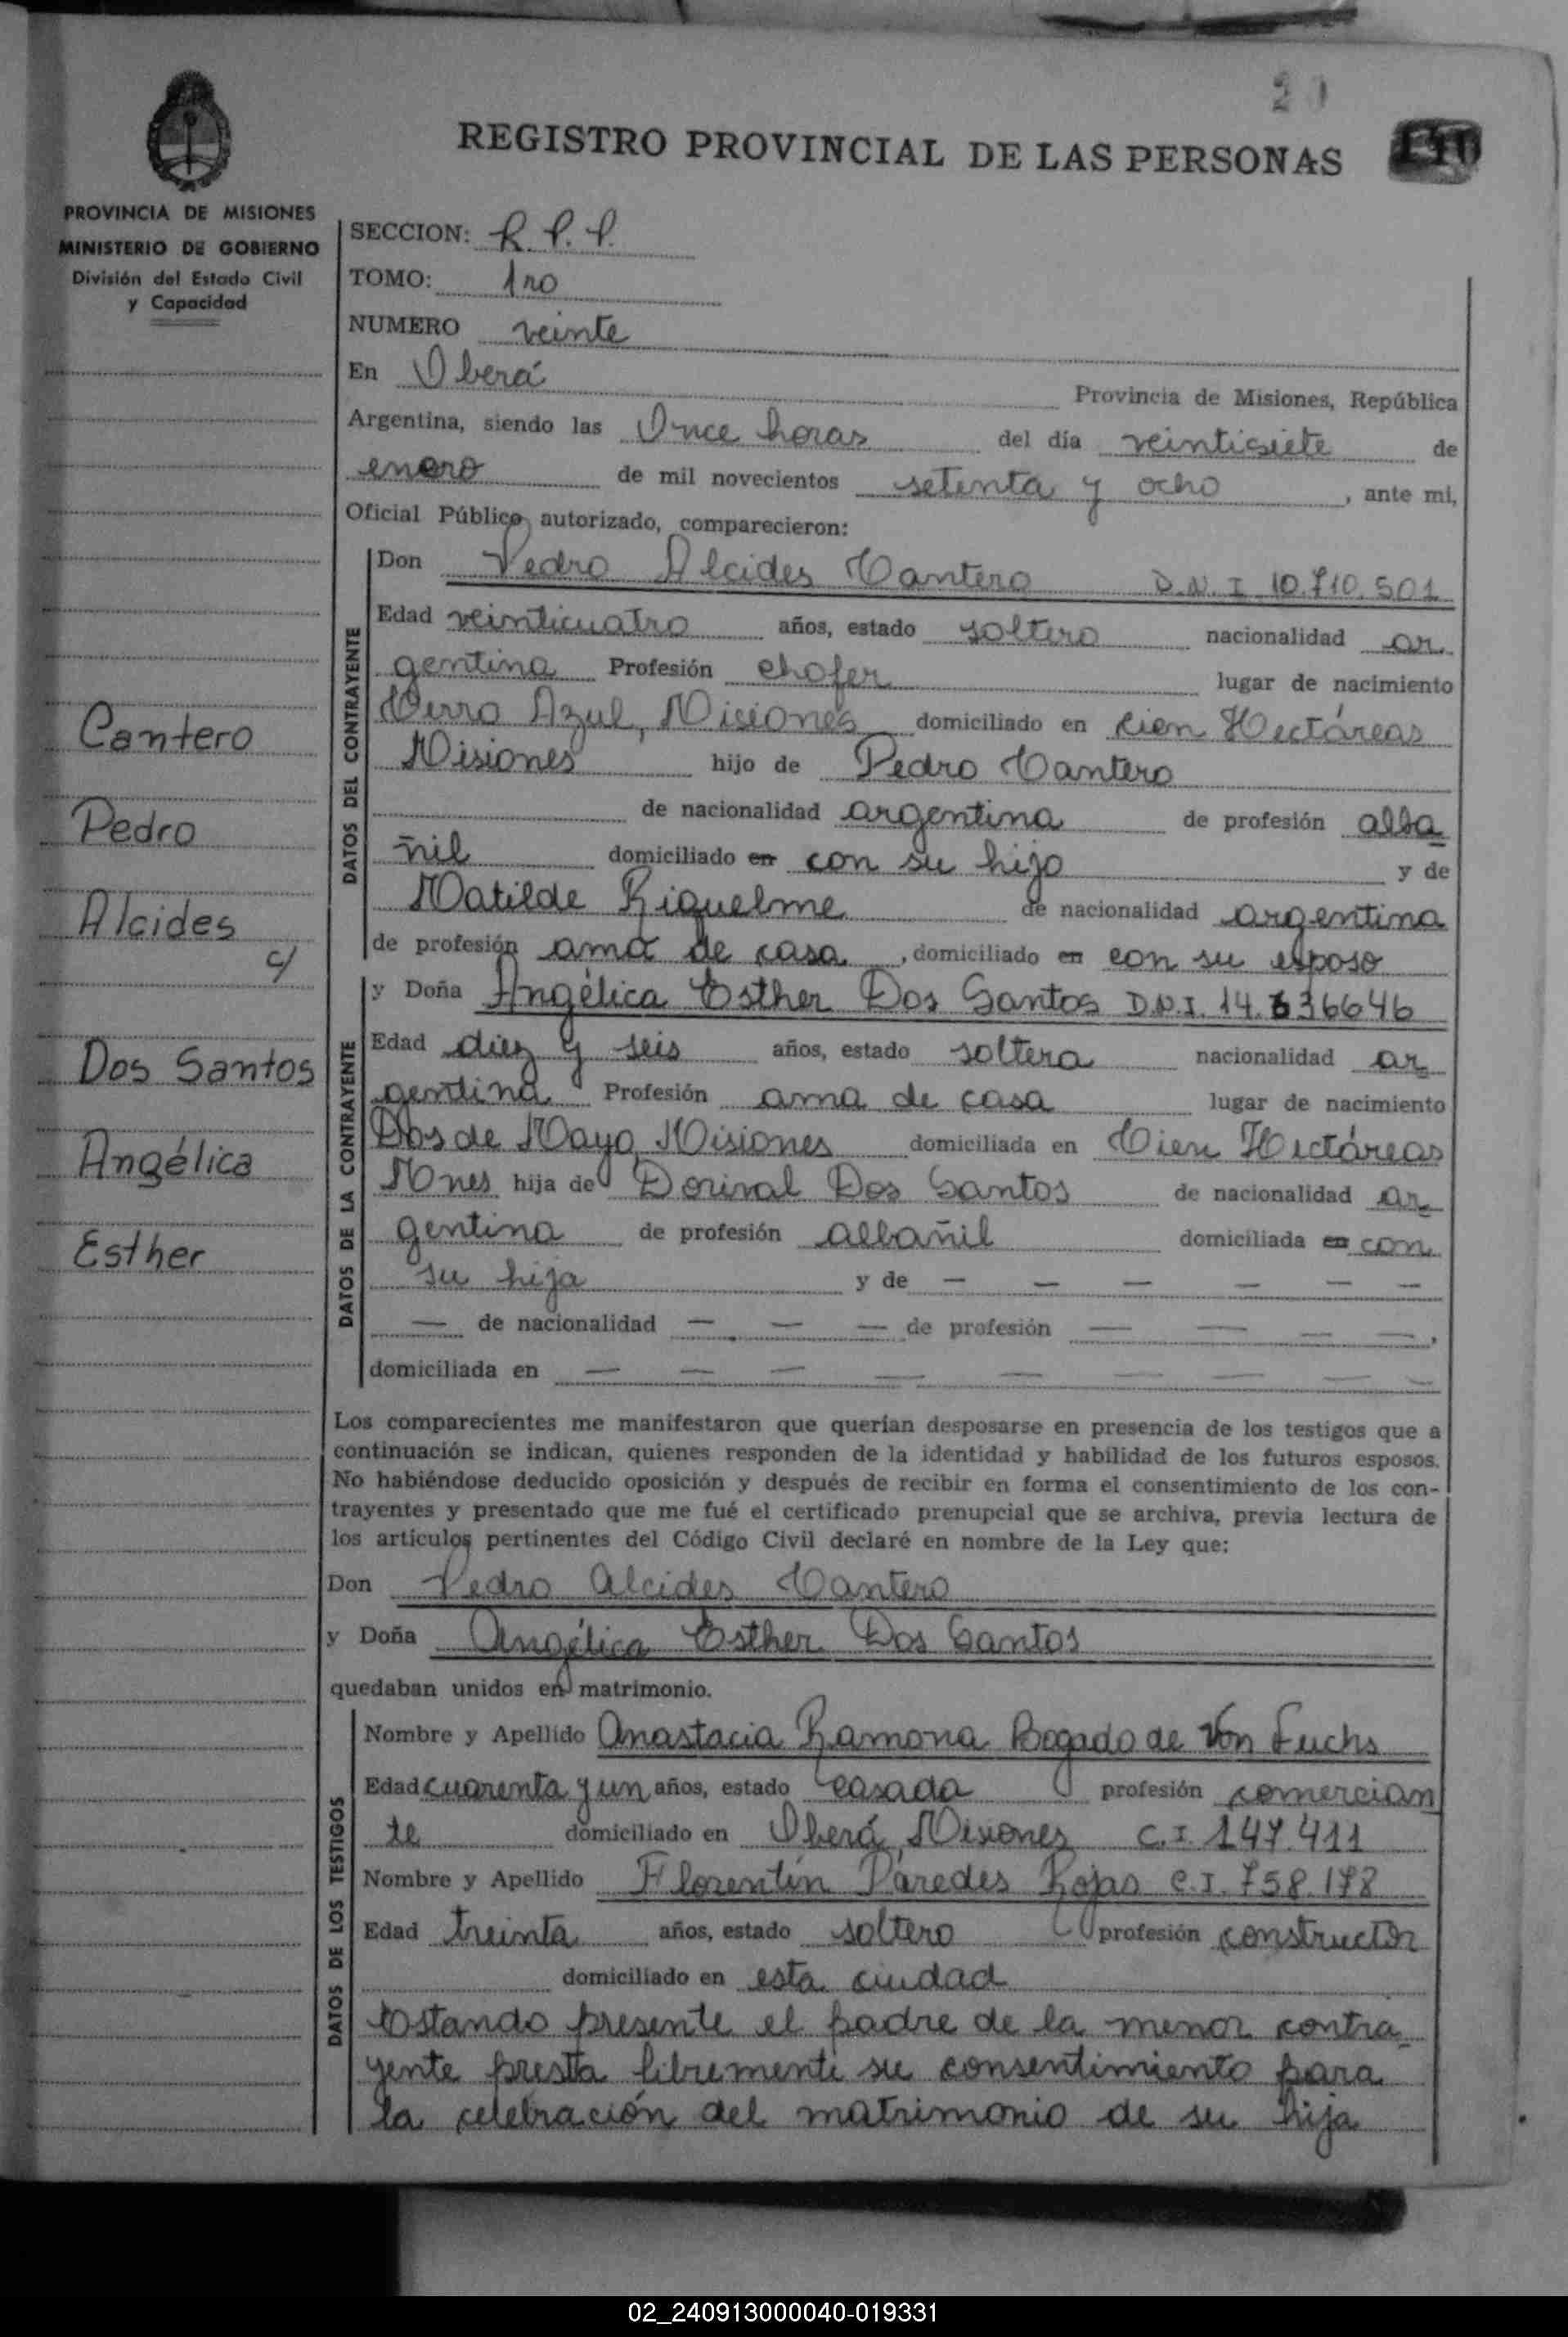 20
REGISTRO PROVINCIAL DE LAS PERSONAS
PROVINCIA DE MISIONES
MINISTERIO DE GOBIERNO
División del Estado Civil
y Capacidad
SECCION: R. P. P.
TOMO: 1ro
NUMERO veinte
En Oberá Provincia de Misiones, República
Argentina, siendo las Once horas del día veintisiete de
enero de mil novecientos setenta y ocho, ante mi,
Oficial Público autorizado, comparecieron:
DATOS DEL CONTRAYENTE
Don Pedro Alcides Cantero D.N.I 10.710.501
Edad veinticuatro años, estado soltero nacionalidad ar
gentina Profesión chofer lugar de nacimiento
Cerro Azul, Misiones domiciliado en Cien Hectáreas
Misiones hijo de Pedro Cantero
de nacionalidad argentina de profesión alba
ñil domiciliado en con su hijo y de
Matilde Riquelme de nacionalidad argentina
de profesión ama de casa, domiciliado en con su esposo
DATOS DE LA CONTRAYENTE
y Doña Angélica Esther Dos Santos D.N.I. 14.636646
Edad diez y seis años, estado soltera nacionalidad ar
gentina Profesión ama de casa lugar de nacimiento
Dos de Mayo, Misiones domiciliada en Cien Hectáreas
Mnes hija de Dorival Dos Santos de nacionalidad ar
gentina de profesión albañil domiciliada en con
su hija y de — — — — — —
— de nacionalidad — — — de profesión — — — —,
domiciliada en — — — — — — — — —
Cantero
Pedro
Alcides
c/
Dos Santos
Angélica
Esther
Los comparecientes me manifestaron que querían desposarse en presencia de los testigos que a
continuación se indican, quienes responden de la identidad y habilidad de los futuros esposos.
No habiéndose deducido oposición y después de recibir en forma el consentimiento de los con-
trayentes y presentado que me fué el certificado prenupcial que se archiva, previa lectura de
los artículos pertinentes del Código Civil declaré en nombre de la Ley que:
Don Pedro Alcides Cantero
y Doña Angélica Esther Dos Santos
quedaban unidos en matrimonio.
DATOS DE LOS TESTIGOS
Nombre y Apellido Anastacia Ramona Bogado de Von Fuchs
Edad cuarenta y un años, estado casada profesión comercian
te domiciliado en Oberá, Misiones C.I. 147.411
Nombre y Apellido Florentín Paredes Rojas C.I. 758.178
Edad treinta años, estado soltero profesión constructor
domiciliado en esta ciudad
Estando presente el padre de la menor contra
yente presta libremente su consentimiento para
la celebración del matrimonio de su hija
02_240913000040-019331